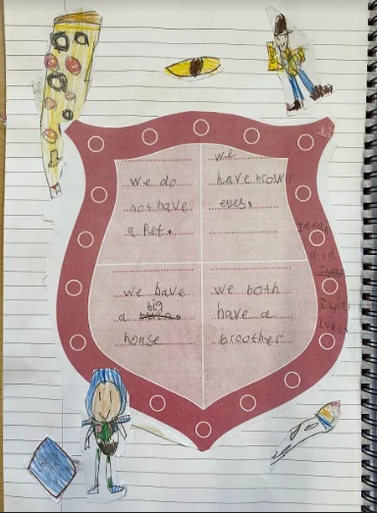 we do
not have
a Pet.
we
have brown
eyes.
we have
big
a
house
we both
have a
broother